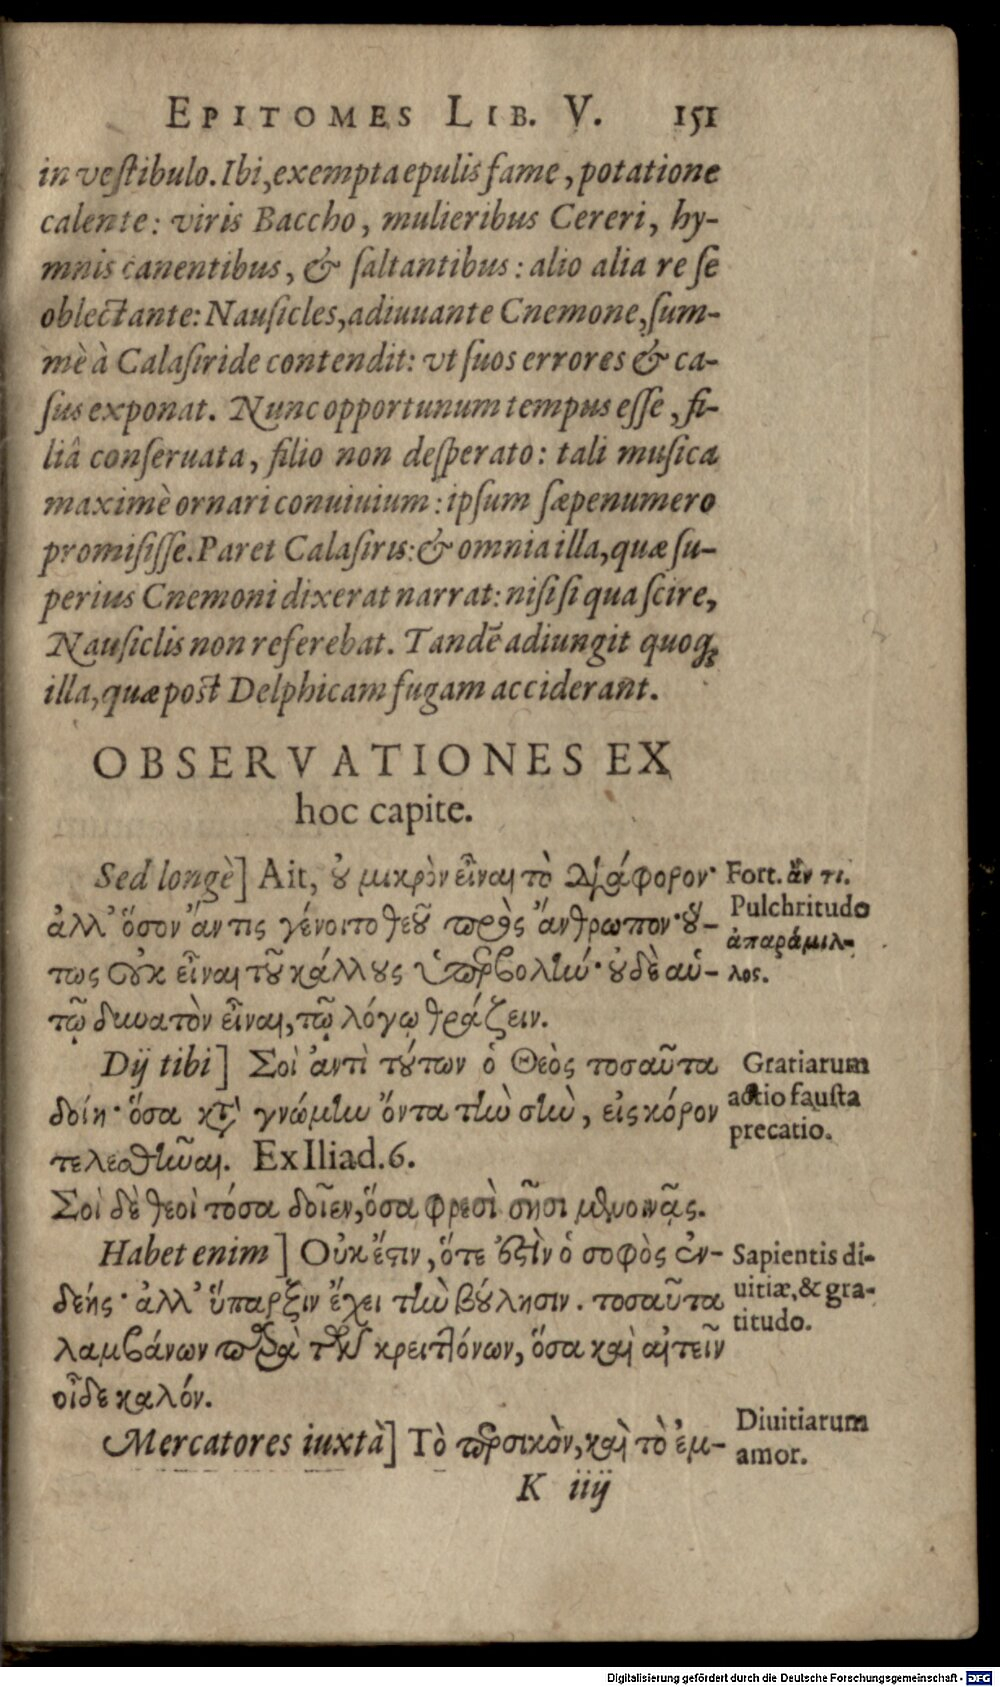 EPITOMES LIB. V. 151
in vestibulo. Ibi, exempta epulis fame, potatione
calente: viris Baccho, mulieribus Cereri, hy-
mnis canentibus, & saltantibus: alio alia re se
oblectante: Nausicles, adiuuante Cnemone, sum-
mè à Calasiride contendit: vt suos errores & ca-
sus exponat. Nunc opportunum tempus esse, fi-
liâ conseruata, filio non desperato: tali musica
maximè ornari conuiuium: ipsum sæpenumero
promisisse. Paret Calasiris: & omnia illa, quæ su-
perius Cnemoni dixerat narrat: nisi si qua scire,
Nausiclis non referebat. Tandē adiungit quoq;
illa, quæ post Delphicam fugam acciderant.
OBSERVATIONES EX
hoc capite.
Sed longè] Ait, οὐ μικρὸν εἶναι τὸ διάφορον·
Fort. ἄν τι.
ἀλλ' ὅσον ἄν τις γένοιτο θεοῦ πρὸς ἄνθρωπον· οὔ-
Pulchritudo
ἀπαράμιλ-
πως οὐκ εἶναι τοῦ κάλλους ὑπερβολήν· οὐδὲ αὐ-
λος.
τῷ δυνατὸν εἶναι, τῷ λόγῳ φράζειν.
Dij tibi] Σοὶ ἀντὶ τούτων ὁ Θεὸς τοσαῦτα
Gratiarum
δοίη· ὅσα κτ' γνώμην ὄντα τὴν σὴν, εἰς κόρον
actio fausta
τελεσθῆναι. Ex Iliad. 6.
precatio.
Σοὶ δὲ θεοὶ τόσα δοῖεν, ὅσα φρεσὶ σῇσι μενοινᾷς.
Habet enim] Οὐκ ἔστιν, ὅτε ἐστὶν ὁ σοφὸς ἐν-
Sapientis di-
δεής· ἀλλ' ὕπαρξιν ἔχει τὴν βούλησιν. τοσαῦτα
uitiæ, & gra-
titudo.
λαμβάνων παρὰ τῶν κρειττόνων, ὅσα καὶ αἰτεῖν
οἶδε καλόν.
Mercatores iuxtà] Τὸ περσικὸν, καὶ τὸ ἐμ-
Diuitiarum
amor.
K iiij
Digitalisierung gefördert durch die Deutsche Forschungsgemeinschaft - DFG